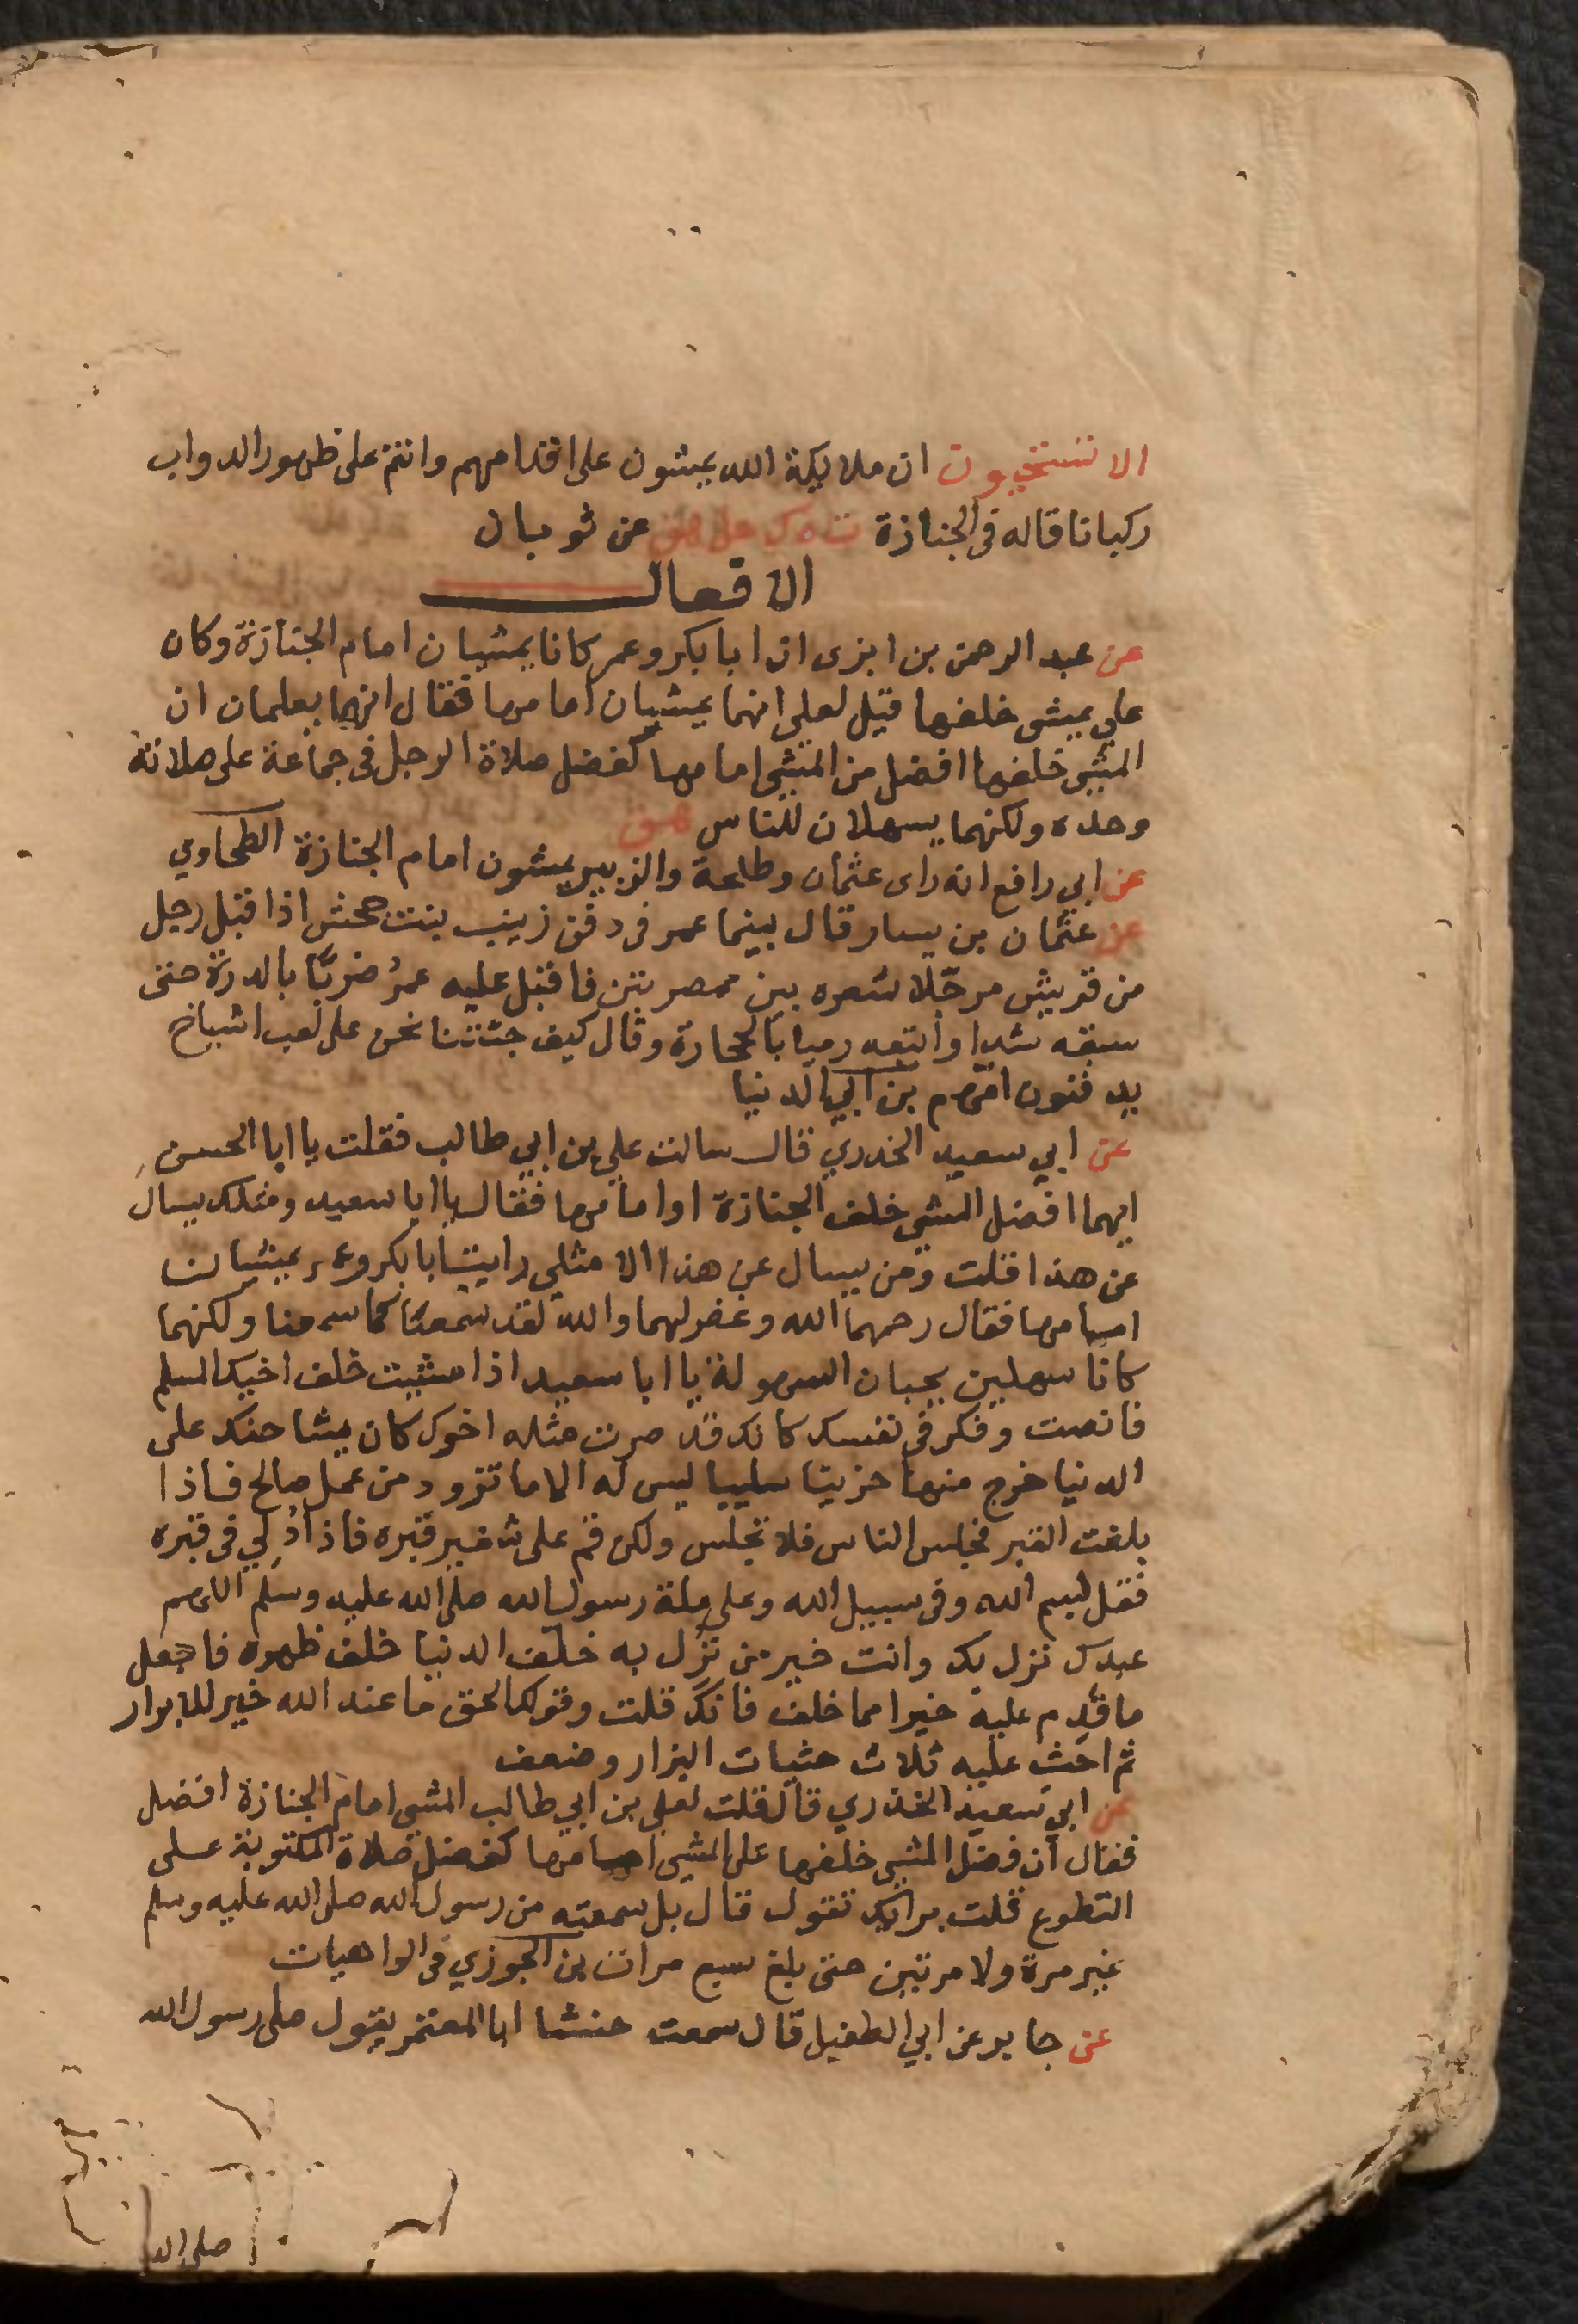 الا تستحيون ان ملايكة الله يمشون على اقدامهم وانتم على ظهور الدواب
ركبانا قاله فى الجنازة ت ه ك حل هق عن ثوبان
الافعال
عن عبد الرحمن بن ابزى ان ابا بكر وعمر كانا يمشيان امام الجنازة وكان
على يمشى خلفها قيل لعلى انهما يمشيان امامها فقال انهما يعلمان ان
المشى خلفها افضل من المشى امامها كفضل صلاة الرجل فى جماعة على صلاته
وحده ولكنهما يسهلان للناس هق
عن ابي رافع انه راى عثمان وطلحة والزبير يمشون امام الجنازة الطحاوي
عن عثمان بن يسار قال بينما عمر فى دفن زينب بنت جحش اذ اقبل رجل
من قريش مرجلا شعره بين ممصرتين فاقبل عليه عمر ضربا بالدرة حتى
سبقه شدا واتبعه رميا بالحجارة وقال كيف جئتنا نحن على لعب اشياخ
يدفنون امهم بن ابي الدنيا
عن ابي سعيد الخدري قال سالت علي بن ابي طالب فقلت يا ابا الحسن
ايهما افضل المشي خلف الجنازة او امامها فقال يا ابا سعيد ومثلك يسال
عن هذا قلت ومن يسال عن هذا الا مثلي رايت ابا بكر وعمر يمشيان
امامها فقال رحمهما الله وغفر لهما والله لقد سمعنا كما سمعنا ولكنهما
كانا سهلين يحبان السهولة يا ابا سعيد اذا مشيت خلف اخيك المسلم
فانصت وفكر فى نفسك كانك قد صرت مثله اخوك كان يشاحنك على
الدنيا خرج منها حزينا سليبا ليس له الا ما تزود من عمل صالح فاذا
بلغت القبر فجلس الناس فلا تجلس ولكن قم على شفير قبره فاذا دلي فى قبره
فقل بسم الله وفى سبيل الله وعلى ملة رسول الله صلى الله عليه وسلم اللهم
عبدك نزل بك وانت خير من نزل به خلف الدنيا خلف ظهره فاجعل
ما قدم عليه خيرا مما خلف فانك قلت وقولك الحق ما عند الله خير للابرار
ثم احث عليه ثلاث حثيات البزار وضعف
عن ابي سعيد الخدري قال قلت لعلى بن ابي طالب المشى امام الجنازة افضل
فقال ان فضل المشى خلفها على المشى امامها كفضل صلاة المكتوبة على
التطوع قلت برايك تقول قال بل سمعته من رسول الله صلى الله عليه وسلم
غير مرة ولا مرتين حتى بلغ سبع مرات بن الجوزي فى الواهيات
عن جابر عن ابي الطفيل قال سمعت حنشا ابا المعتمر يقول صلى رسول الله